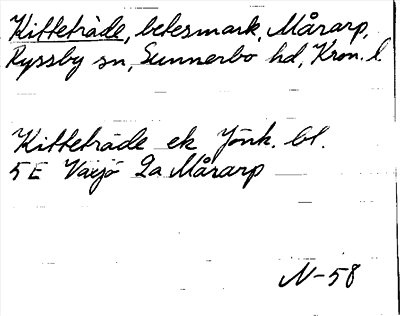 Kitteträde, betesmark, Mårarp,
Ryssby sn, Sunnerbo hd, Kron. l.
Kitteträde ek Jönk. bl.
5E Växjö 2a Mårarp
N-58